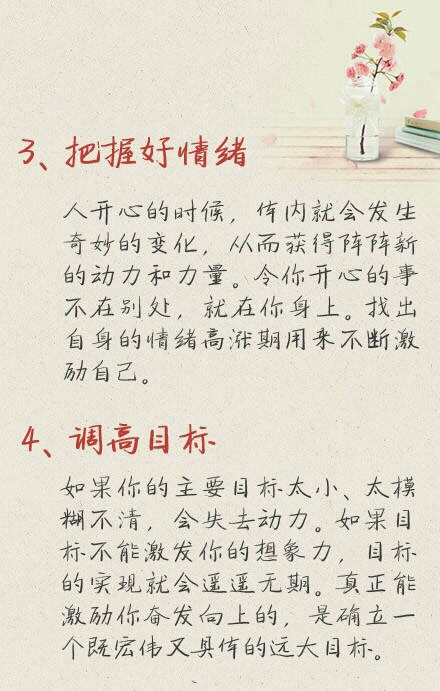 3、把握好情绪
人开心的时候，体内就会发生
奇妙的变化，从而获得阵阵新
的动力和力量。令你开心的事
不在别处，就在你身上。找出
自身的情绪高涨期用来不断激
励自己。
4、调高目标
如果你的主要目标太小、太模
糊不清，会失去动力。如果目
标不能激发你的想象力，目标
的实现就会遥遥无期。真正能
激励你奋发向上的，是确立一
个既宏伟又具体的远大目标。